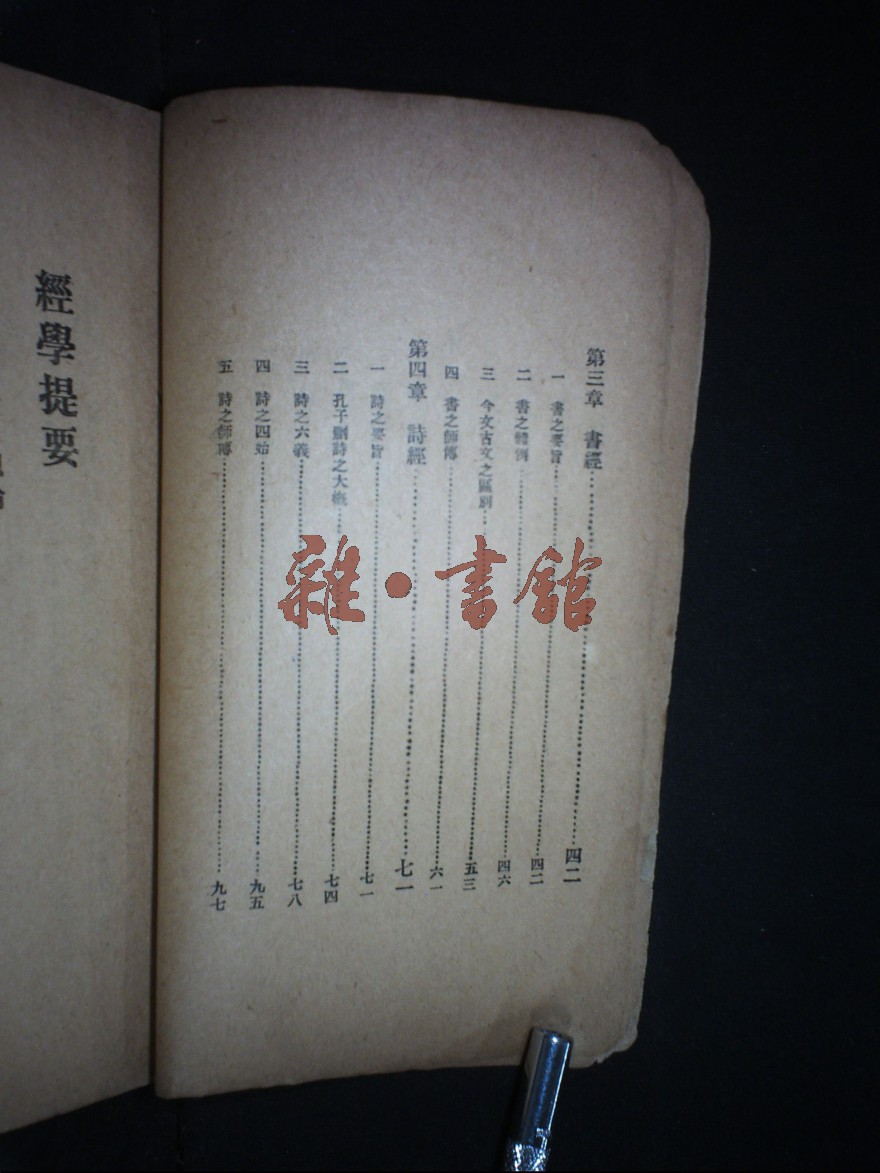 第三章 書經 四二
一 書之要旨 四二
二 書之體例 四六
三 今文古文之區別 五三
四 書之師傳 六一
第四章 詩經 七一
一 詩之要旨 七一
二 孔子刪詩之大概 七四
三 詩之六義 七八
四 詩之四始 九五
五 詩之師傳 九七
經學提要
雜·書館